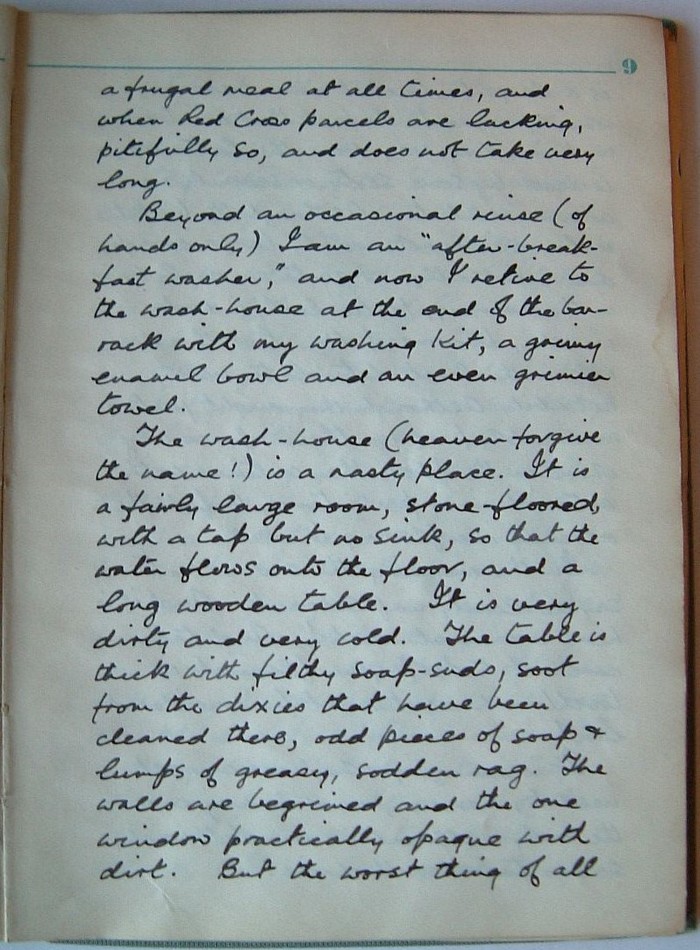 9
a frugal meal at all times, and
when Red Cross parcels are lacking,
pitifully so, and does not take very
long.
Beyond an occasional rinse (of
hands only) I am an "after-break-
fast washer," and now I retire to
the wash-house at the end of the bar-
rack with my washing kit, a grimy
enamel bowl and an even grimier
towel.
The wash-house (heaven forgive
the name!) is a nasty place. It is
a fairly large room, stone-floored,
with a tap but no sink, so that the
water flows onto the floor, and a
long wooden table. It is very
dirty and very cold. The table is
thick with filthy soap-suds, soot
from the dixies that have been
cleaned there, odd pieces of soap &
lumps of greasy, sodden rag. The
walls are begrimed and the one
window practically opaque with
dirt. But the worst thing of all